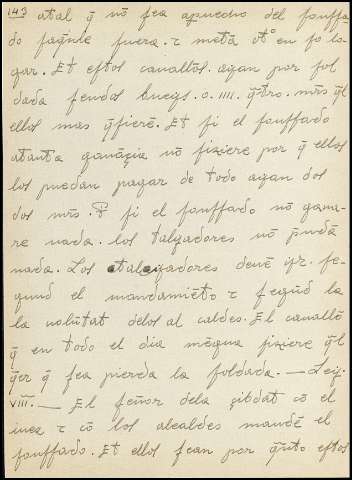 143 atal q̄ nō sea apuecho del fonssa-
do fagāle fuera. τ metā ot° en so lo-
gar. Et estos cauallos. ayan por sol
dada sendos bueys. o. IIII. mrs ql
ellos mas q̄sierē. Et si el fonssado
atanta ganāçia nō fiziere por q̄ ellos
los puedan pagar de todo ayan dos
dos mrs. si el fonssado nō gana-
re nada. los talayadores nō p̄ndā
nada. Los atalayadores deuē yr. se-
gund el mandamiēto τ segūd la
la volūtat delos alcaldes. El cauallō
q̄ en todo el dia mēgua fiziere ql
q̄er q̄ sea pierda la soldada. — Leij.
VIII. — El señor dela çibdat cō el
iuez τ cō los alcaldes mandē el
fonssado. Et ellos sean por q̄nto estos